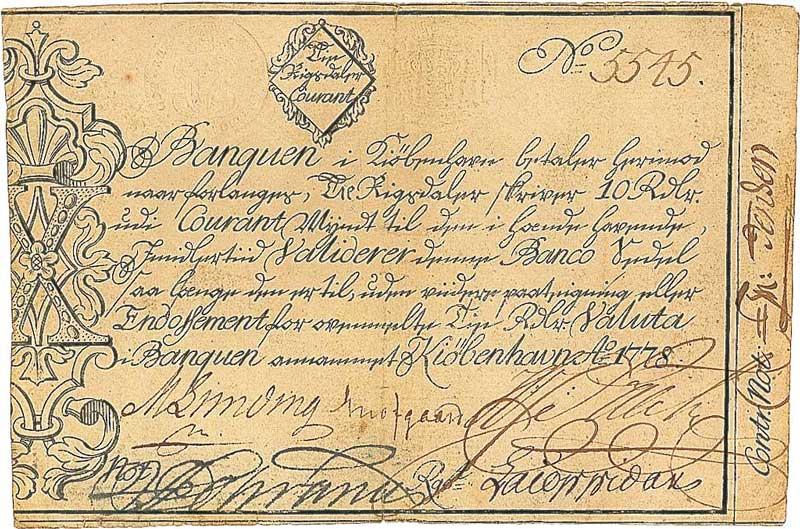 Tie
Rigsdaler
Courant
No 5545.
Banquen i Kiöbenhavn betaler herimod
naar forlanges, Tie Rigsdaler skriver 10 Rdlr.
udi Courant Myndt til den i hænde havende,
Imidlertiid Validerer denne Banco Sedel
saa længe den er til, uden viidere paateigning eller
Endossement for ovenmelte Tie Rdlr. Valuta
i Banquen annammet Kiöbenhavn Ao 1778.
Not.
Rgt.
Contr. Not.